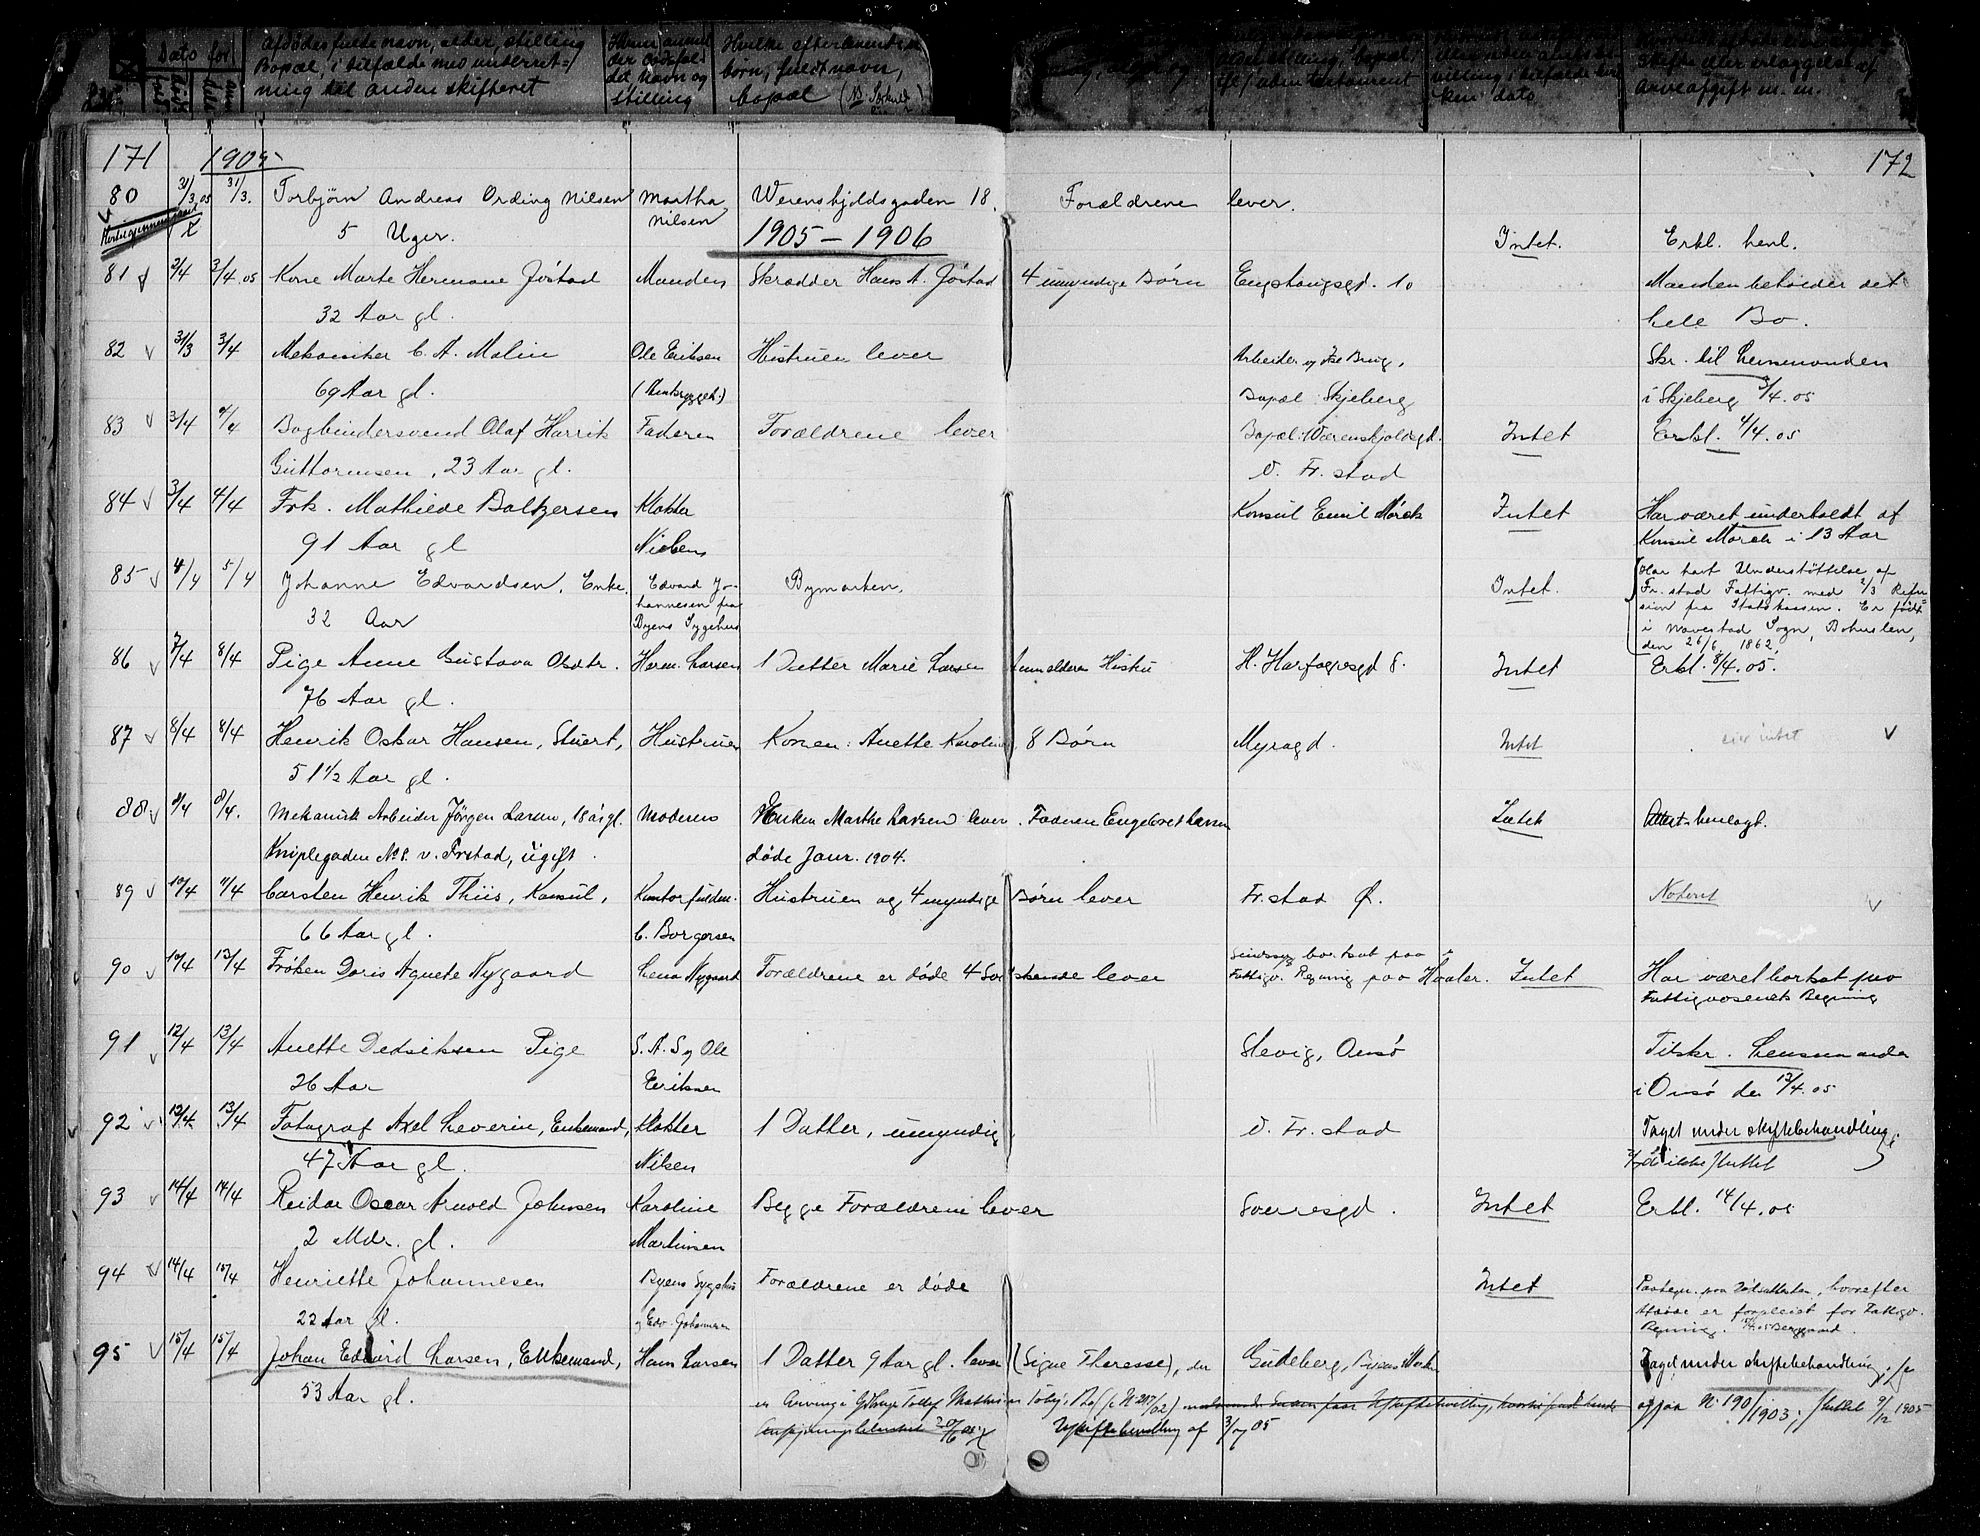 Dato for
Afdødes fulde navn, alder, stilling
Bopæl, i tilfælde med underret=
ning til anden skifteret
Hvem anmel
det navn og
stilling
Hvilke efterlevende
børn, fuldt navn,
bopæl
uden testament
dato
Skifte eller erlæggelse af
Arveafgift m. m.
171 1905 172
80 31/3 05 31/3. Torbjørn Andreas Ording Nilsen Martha Werenskjoldsgaden 18. Forældrene lever.
5 Uger. Nilsen 1905 – 1906 Intet. Erkl. henl.
81 2/4 3/4 05 Kone Marte Hermane Jöstad Manden Skrædder Hans A. Jöstad 4 umyndige Börn Engstangsgd. 10 Manden beholder det
32 Aar gl. hele Bo.
82 31/3 3/4 Mekaniker C. A. Malin Ole Eriksen Hustruen lever Arbeider Brug, Skr. til Lensmanden
69 Aar gl. Bopæl: Skjeberg i Skjeberg 3/4. 05
83 3/4 4/4 Bogbindersvend Olaf Harrik Faderen Forældrene lever Bopæl: Værenskjoldsgd. Intet Erkl. 4/4. 05
Guttormsen, 23 Aar gl. v. Fr.stad
84 3/4 4/4 Frk. Mathilde Baltzersen Klokker Konsul Emil Mörch Intet Har været underholdt af
91 Aar gl Nielsen Konsul Mörch i 13 Aar
85 4/4 5/4 Johanne Edvardsen, Enke. Edvard Jo- Bymarken. Intet. Har havt Understöttelse af
32 Aar hannesen fra Fr.stad Fattigv. med 2/3 Refu-
Byens Sygehus sion fra Statskassen. Er født
i Navestad Sogn, Bohuslen,
den 26/6 1862.
86 7/4 8/4 Pige Anne Gustava Olsdtr. Herm. Larsen 1 Datter Marie Larsen H. Hartogsgd 8. Intet Erkl. 8/4. 05.
76 Aar gl.
87 8/4 8/4 Henrik Oskar Hansen, Stuert, Hustruen Konen: Anette Karoline, 8 Börn Myragd. Intet eier intet
51 1/2 Aar gl.
88 8/4 8/4. Mekanisk Arbeider Jörgen Larsen, 18 år gl. Moderen Enken Marthe Larsen lever. Faderen Engebret Larsen Intet Attest henlagt.
Kniplegaden No 8. v. Frstad, ugift. døde Janr. 1904.
89 10/4 11/4 Carsten Henrik Thiis, Konsul, Kontorfuldm. Hustruen og 4 myndige Börn lever Fr.stad Ø. Noteret
66 Aar gl. C. Borgersen
90 10/4 12/4 Fröken Doris Agnete Nygaard Lena Nygaard Forældrene er döde 4 Söskende lever Sindssyg bortsat paa Fattigv. Regning paa Hvaler. Intet Har været bortsat paa
Fattigvæsenets Regning
91 12/4 13/4 Anette Dedriksen Pige S. A. Syg Ole Slevig, Onsö Tilskr. Lensmanden
26 Aar Eriksen i Onsö den 13/4. 05
92 12/4 13/4 Fotograf Axel Severin, Enkemand, Klokker 1 Datter, umyndig V. Fr.stad Taget under skiftebehandling;
47 Aar gl. Nilsen sluttet
93 14/4 14/4 Reidar Oscar Arnold Johnsen Karoline Begge Forældrene lever Sverresgd. Intet Erkl. 14/4. 05
2 Mdr. gl. Martinsen
94 14/4 15/4 Henriette Johannesen Byens Sygehus Forældrene er döde Intet Paategn. paa Dödsattesten, hvorefter
22 Aar gl. Edv. Johannesen Afdøde er forpleiet for Fattigv.
Regning.
95 15/4 15/4 Johan Edvard Larsen, Enkemand, Hans Larsen 1 Datter 9 Aar gl. lever (Signe Therese), der Gudeberg, Byens Mark Taget under skiftebehandling; se
53 Aar gl. er Arving i ogsaa No 190/1903; sluttet 9/12 1905
20/6 05 af 3/7 05